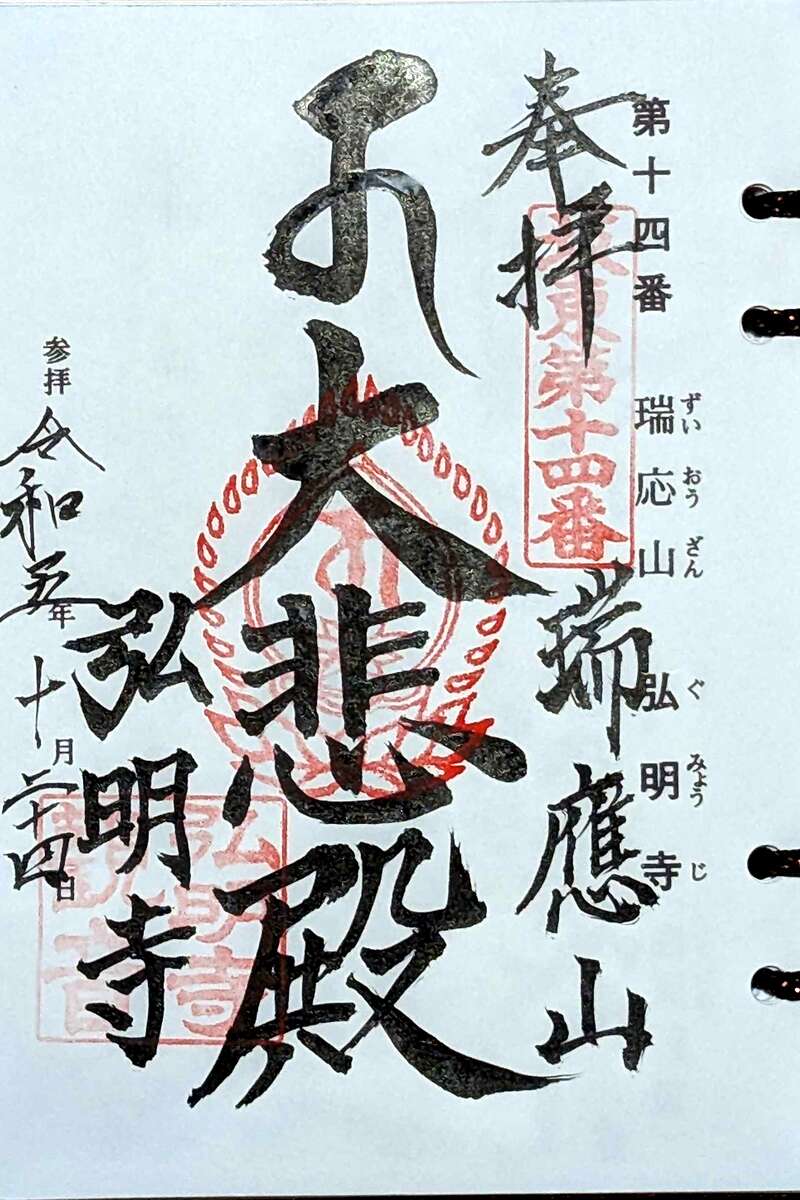 第十四番 瑞応山 弘明寺
ずいおうざん ぐみょうじ
奉拝
坂東第十四番
瑞應山
大悲殿
弘明寺
弘明寺
観音
参拝 令和五年十月二十四日